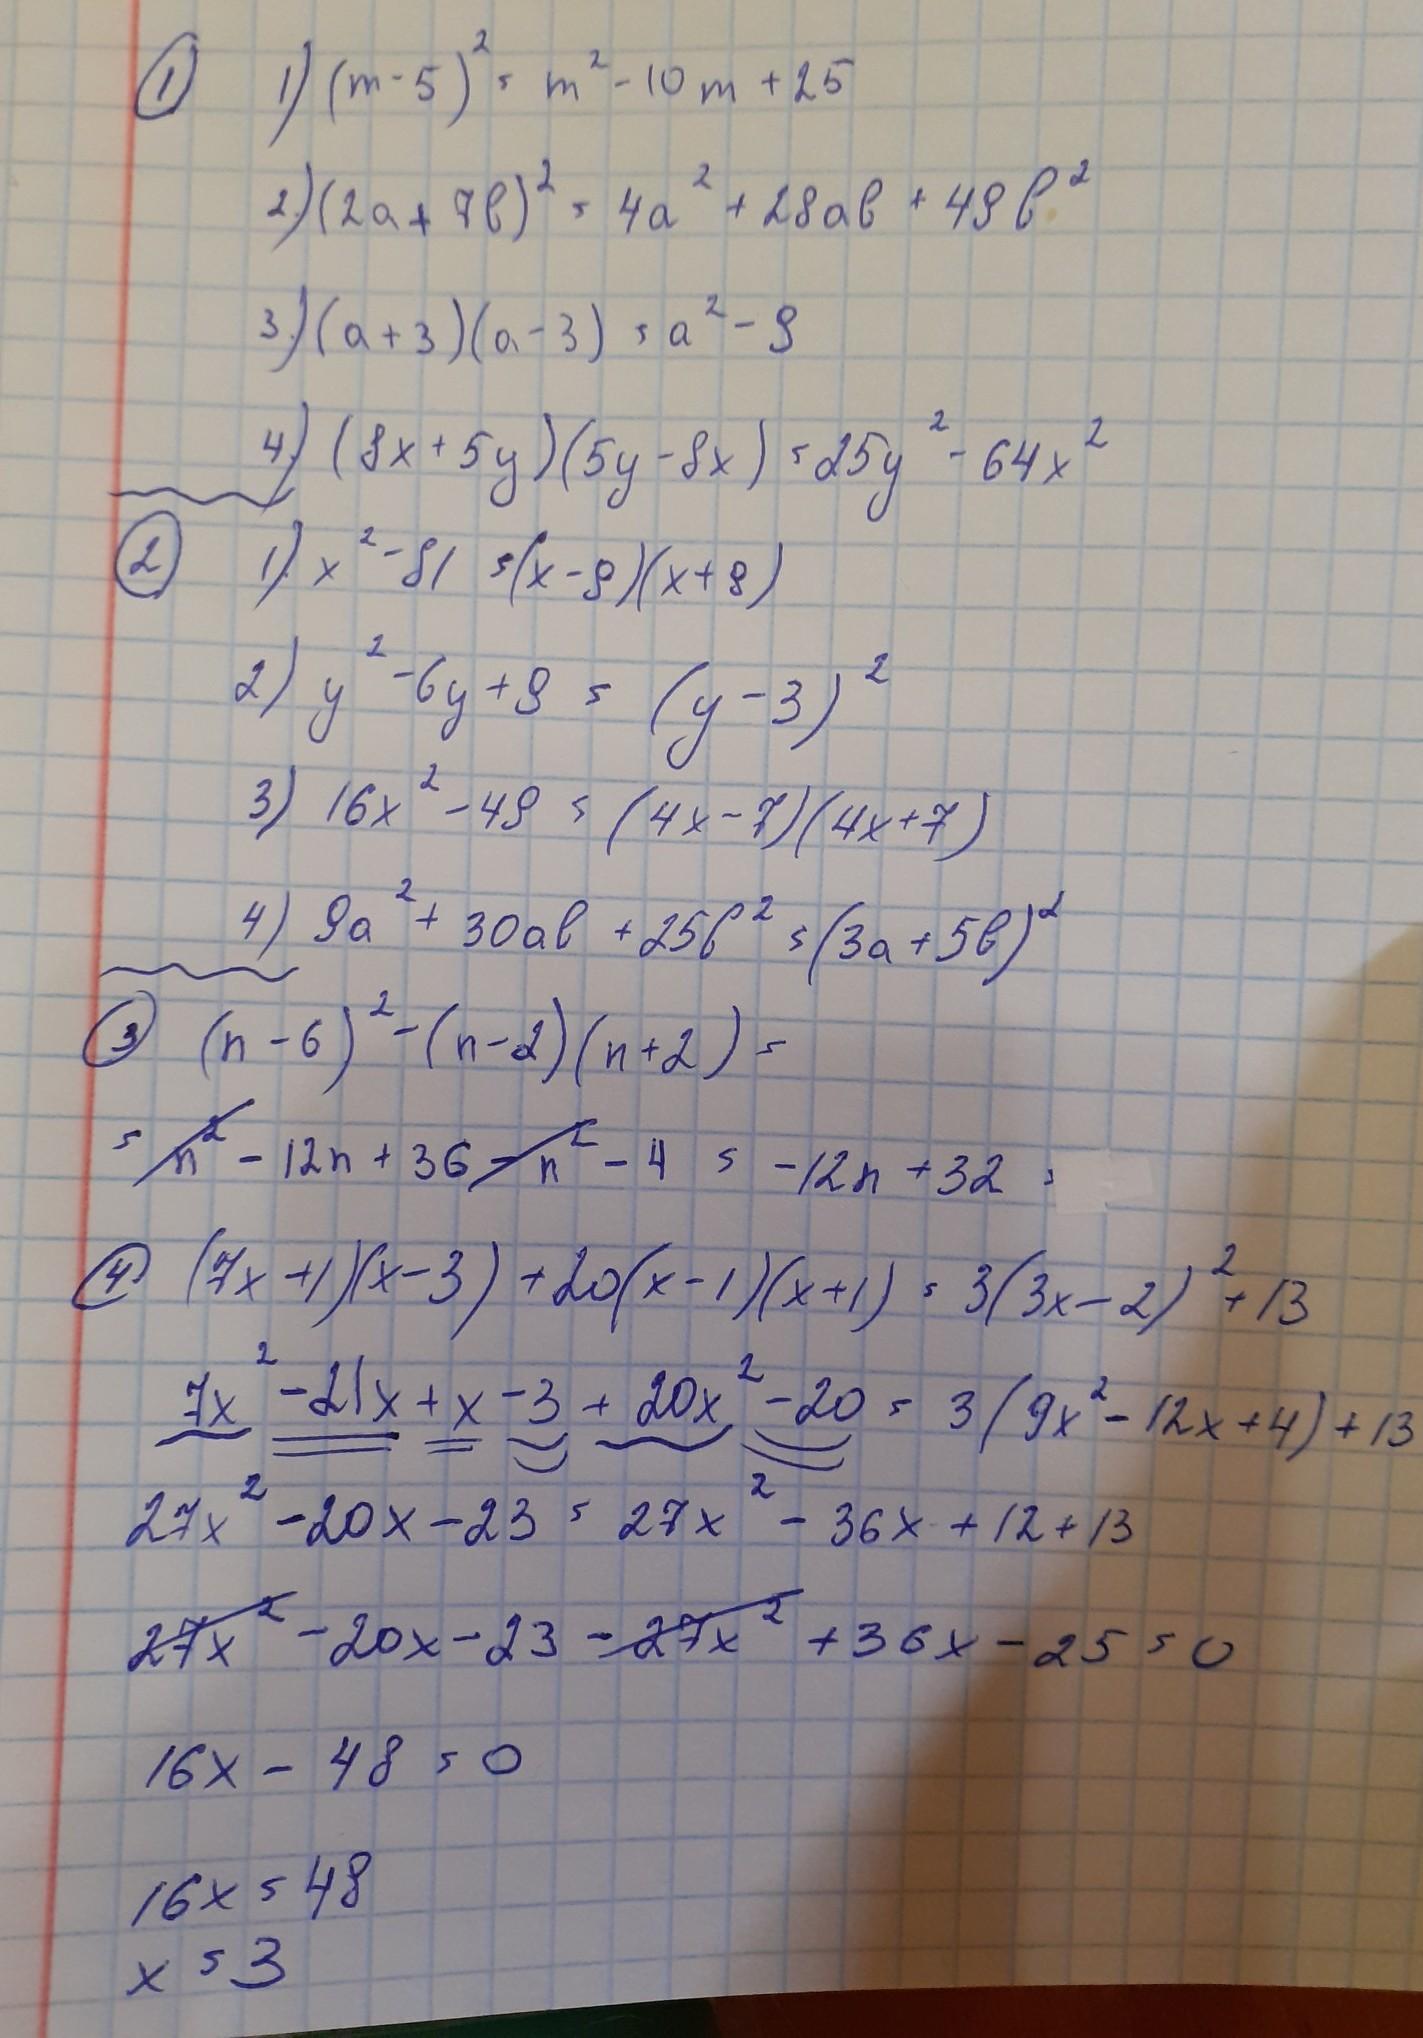 ① 1) (m-5)² = m² - 10m + 25
2) (2a + 7b)² = 4a² + 28ab + 49b²
3) (a+3)(a-3) = a² - 9
4) (8x+5y)(5y-8x) = 25y² - 64x²
② 1) x² - 81 = (x-9)(x+9)
2) y² - 6y + 9 = (y-3)²
3) 16x² - 49 = (4x-7)(4x+7)
4) 9a² + 30ab + 25b² = (3a+5b)²
③ (n-6)² - (n-2)(n+2) =
= n² - 12n + 36 - n² - 4 = -12n + 32 =
④ (7x+1)(x-3) + 20(x-1)(x+1) = 3(3x-2)² + 13
7x² - 21x + x - 3 + 20x² - 20 = 3(9x² - 12x + 4) + 13
27x² - 20x - 23 = 27x² - 36x + 12 + 13
27x² - 20x - 23 - 27x² + 36x - 25 = 0
16x - 48 = 0
16x = 48
x = 3